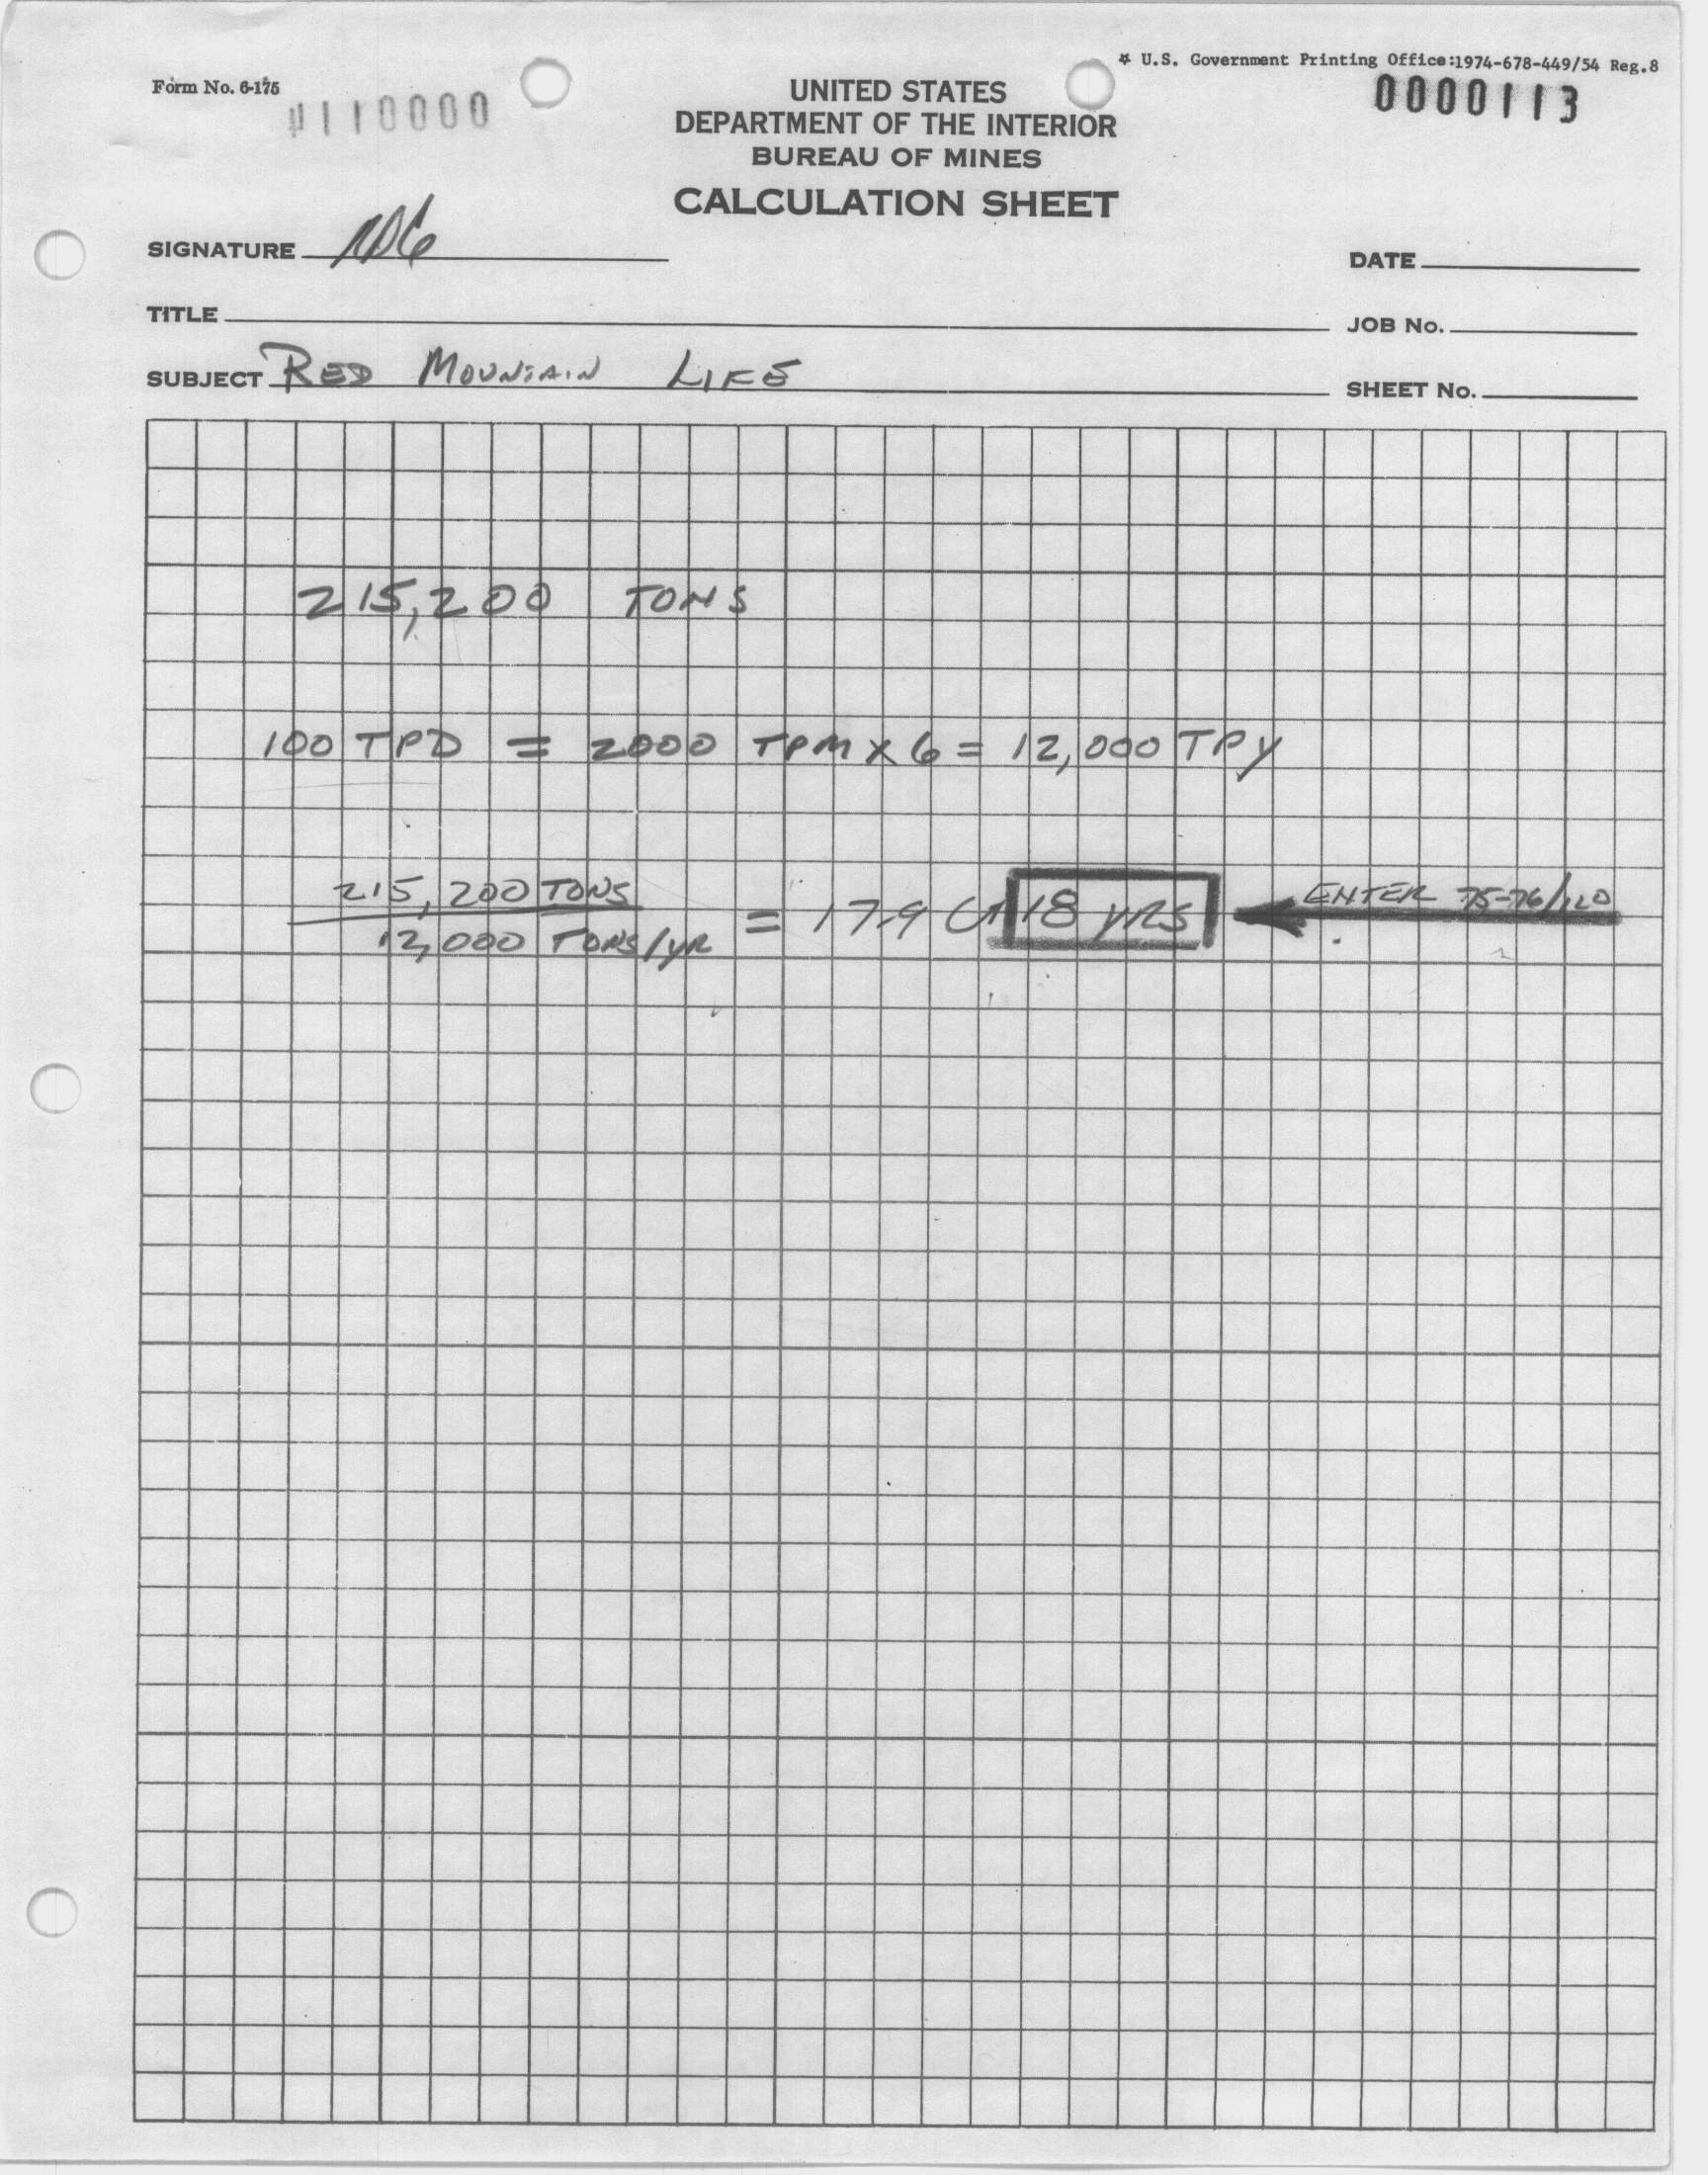 * U.S. Government Printing Office:1974-678-449/54 Reg.8
Form No. 6-175
0000113
UNITED STATES
DEPARTMENT OF THE INTERIOR
BUREAU OF MINES
CALCULATION SHEET
SIGNATURE
DATE
TITLE
JOB No.
SUBJECT RED MOUNTAIN LIFE
SHEET No.
215,200 TONS
100 TPD = 2000 TPM X 6 = 12,000 TPY
215,200 TONS
12,000 TONS/YR
= 17.9 or 18 YRS
ENTER 75-76/120